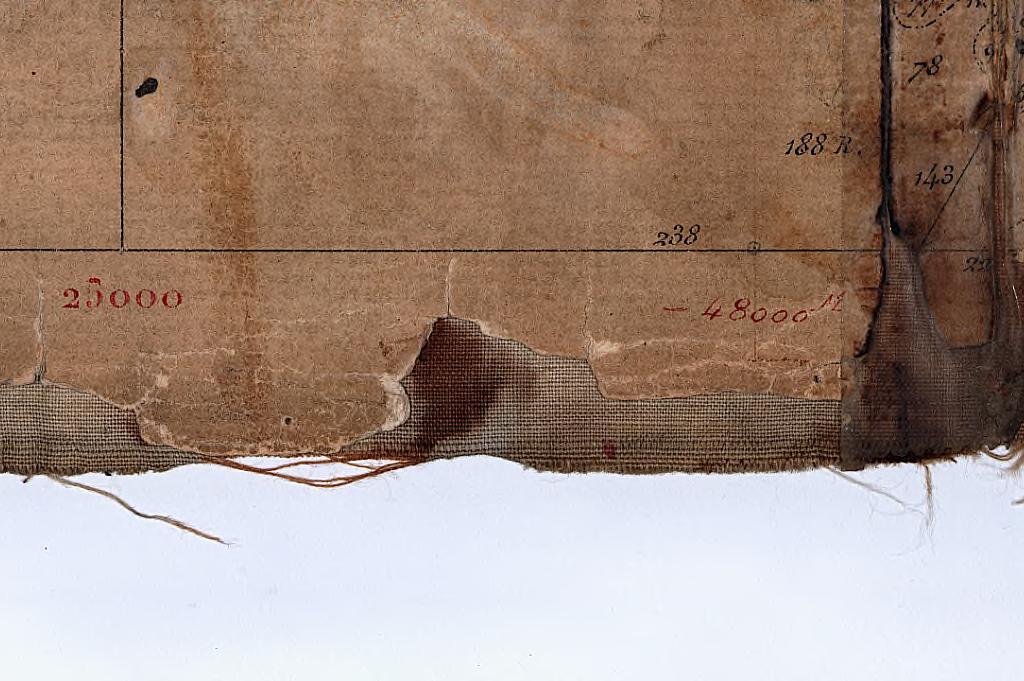 78
188 R.
143
238
25000
- 48000 M